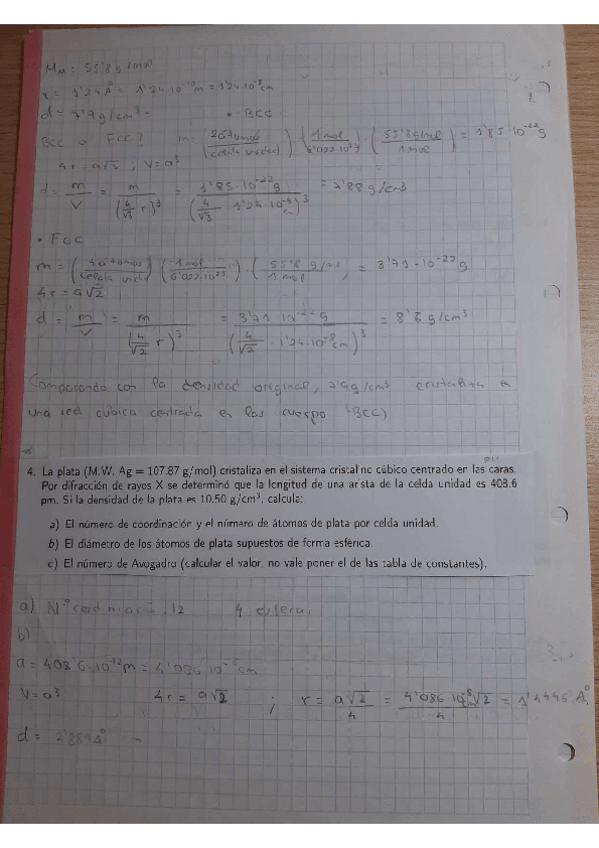 r = 1'24 Å = 1'24·10⁻¹⁰ m = 1'24·10⁻⁸ cm
d = 7'9 g/cm³
• BCC
BCC o FCC? m: (2 átomos / celda unidad) (1 mol / 6'022·10²³) (55'8 g/mol / 1 mol) = 1'85·10⁻²² g
4r = a√3 ; V = a³
d = m/V = m/(4/√3 r)³ = 1'85·10⁻²² g/(4/√3 · 1'24·10⁻⁸ cm)³ = 7'88 g/cm³
• FCC
m = (4 átomos / celda unid) (1 mol / 6'022·10²³) · (55'8 g/mol / 1 mol) = 3'71·10⁻²² g
4r = a√2
d = m/V = m/(4/√2 r)³ = 3'71·10⁻²² g/(4/√2 · 1'24·10⁻⁸ cm)³ = 8'6 g/cm³
Comparando con la densidad original, 7'9 g/cm³ cristaliza en
una red cúbica centrada en las cuerpo (BCC)
4. La plata (M.W. Ag = 107.87 g/mol) cristaliza en el sistema cristalino cúbico centrado en las caras.
Por difracción de rayos X se determinó que la longitud de una arista de la celda unidad es 408.6
pm. Si la densidad de la plata es 10.50 g/cm³, calcula:
a) El número de coordinación y el número de átomos de plata por celda unidad.
b) El diámetro de los átomos de plata supuestos de forma esférica.
c) El número de Avogadro (calcular el valor, no vale poner el de las tabla de constantes).
a) Nº coordinación: 12
b)
a = 408'6·10⁻¹² m = 4'086·10⁻⁸ cm
V = a³ 4r = a√2 ; r = a√2/4 = 4'086·10⁻⁸ cm √2/4 = 1'4446 Å
d = 2'889 Å